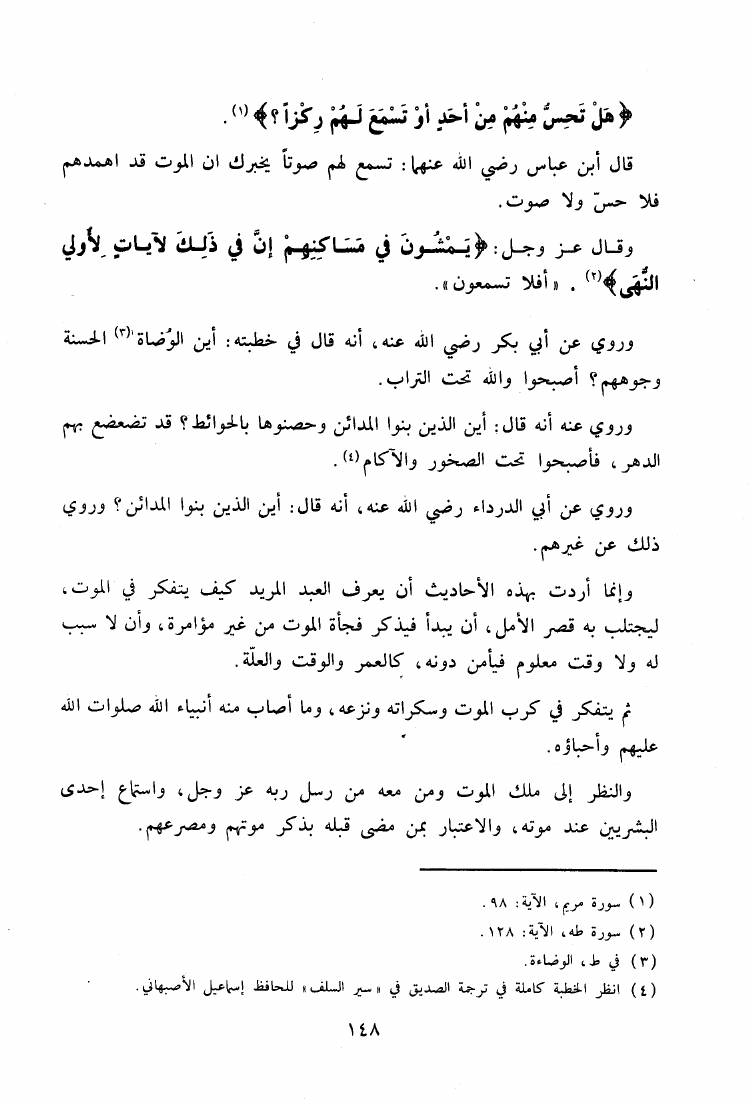 ﴿ هَلْ تَحِسُّ مِنْهُمْ مِنْ أَحَدٍ أَوْ تَسْمَعَ لَهُمْ رِكْزاً؟ ﴾ (١) .
قال أبن عباس رضي الله عنهما: تسمع لهم صوتاً يخبرك ان الموت قد اهمدهم
فلا حسّ ولا صوت.
وقال عز وجل: ﴿ يَمْشُونَ في مَسَاكِنِهِمْ إنَّ في ذَلِكَ لآيَاتٍ لِأُولي
النُّهَى ﴾ (٢) . « أفلا تسمعون ».
وروي عن أبي بكر رضي الله عنه، أنه قال في خطبته: أين الوُضاة (٣) الحسنة
وجوههم؟ أصبحوا والله تحت التراب.
وروي عنه أنه قال: أين الذين بنوا المدائن وحصنوها بالحوائط؟ قد تضعضع بهم
الدهر، فأصبحوا تحت الصخور والآكام (٤) .
وروي عن أبي الدرداء رضي الله عنه، أنه قال: أين الذين بنوا المدائن؟ وروي
ذلك عن غيرهم.
وإنما أردت بهذه الأحاديث أن يعرف العبد المريد كيف يتفكر في الموت،
ليجتلب به قصر الأمل، أن يبدأ فيذكر فجأة الموت من غير مؤامرة، وأن لا سبب
له ولا وقت معلوم فيأمن دونه، كالعمر والوقت والعلّة.
ثم يتفكر في كرب الموت وسكراته ونزعه، وما أصاب منه أنبياء الله صلوات الله
عليهم وأحباؤه.
والنظر إلى ملك الموت ومن معه من رسل ربه عز وجل، واستماع إحدى
البشريين عند موته، والاعتبار بمن مضى قبله بذكر موتهم ومصرعهم.
(١) سورة مريم، الآية: ٩٨ .
(٢) سورة طه، الآية: ١٢٨ .
(٣) في ط، الوضاءة.
(٤) انظر الخطبة كاملة في ترجمة الصديق في « سير السلف » للحافظ إسماعيل الأصبهاني.
١٤٨